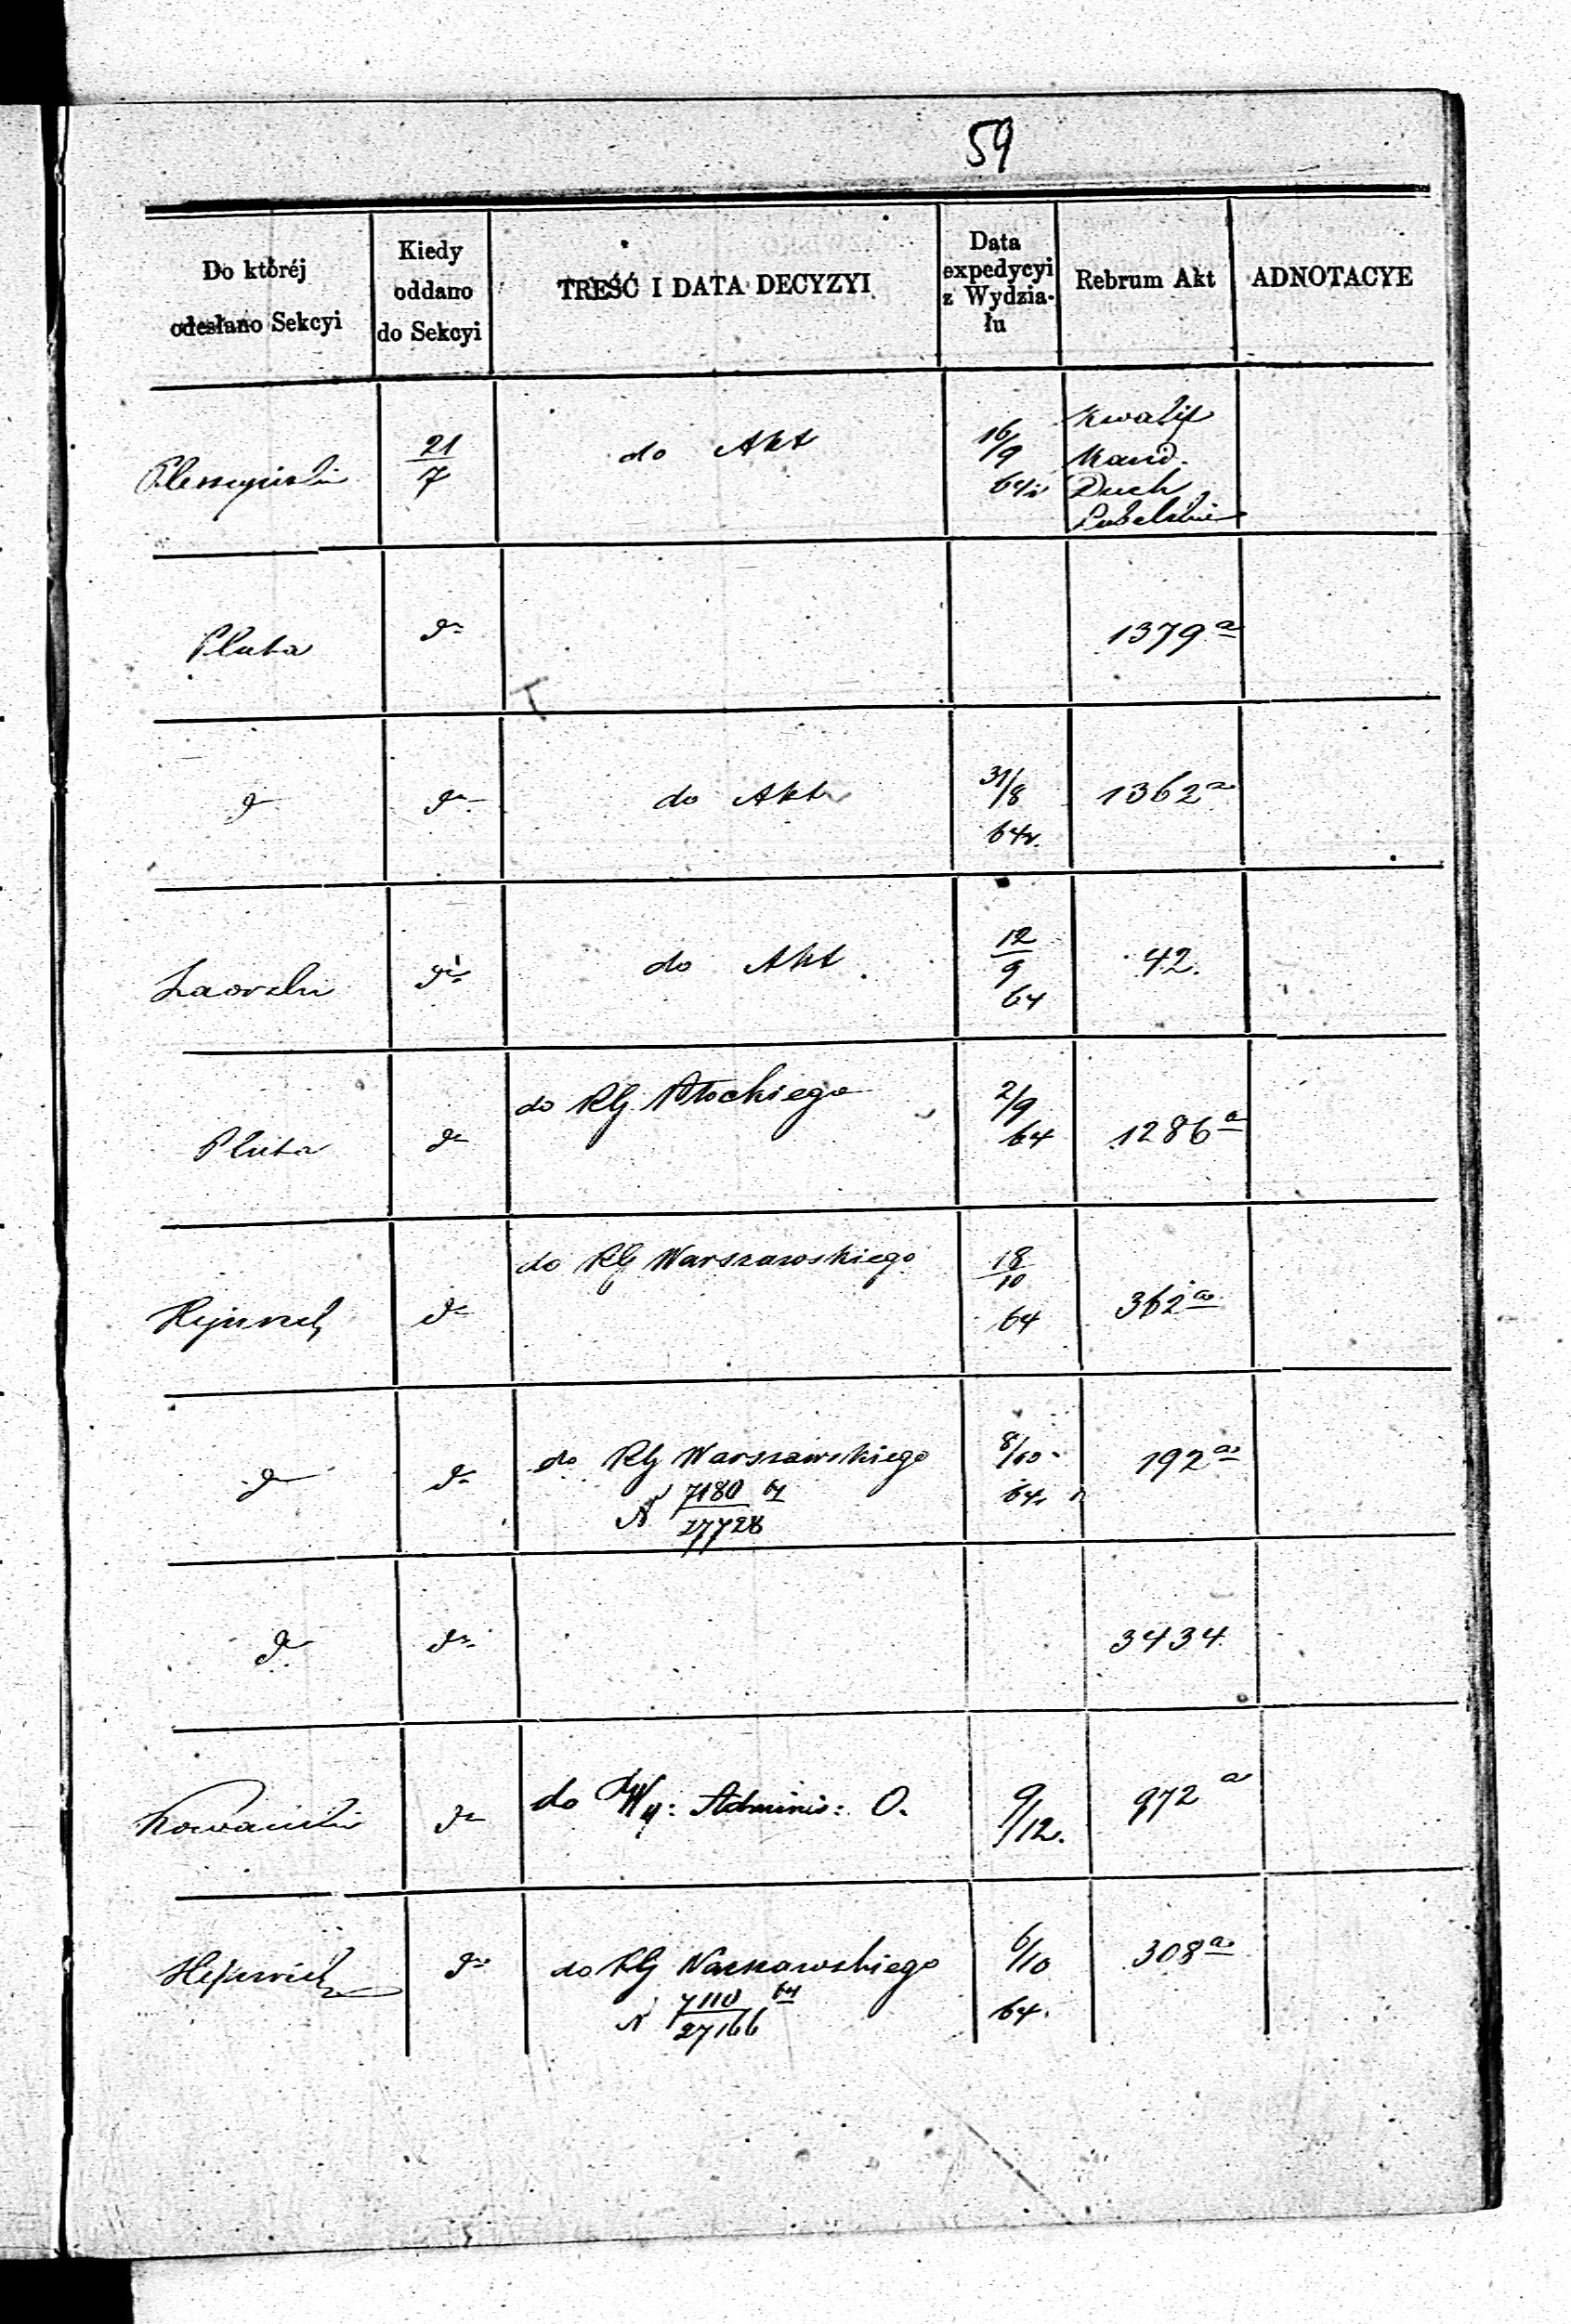 59
Do któréj
odesłano Sekcyi
Kiedy
oddano
do Sekcyi
TREŚĆ I DATA DECYZYI
Data
expedycyi
z Wydzia-
łu
Rebrum Akt
ADNOTACYE
21
7
do Akt
16/9
64r
Kwalif
Kand.
Duch
Lubelskie
Pluta
do
1379 a
do
do
do Akt
31/8
64r.
1362 a
do
do Akt
12
9
64
42.
Pluta
do
do RG Płockiego
2/9
64
1286 a
do
do RG Warszawskiego
18
10
64
362 a
do
do
do RG Warszawskiego
N 7180 64
27728
8/10
64
192 a
do
do
3434
do
do Wy: Adminis: O.
9/12.
972 a
do
do RG Warszawskiego
N 7110 64
27166
6/10
64.
308 a